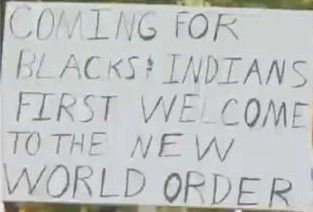 COMING FOR
BLACKS & INDIANS
FIRST WELCOME
TO THE NEW
WORLD ORDER